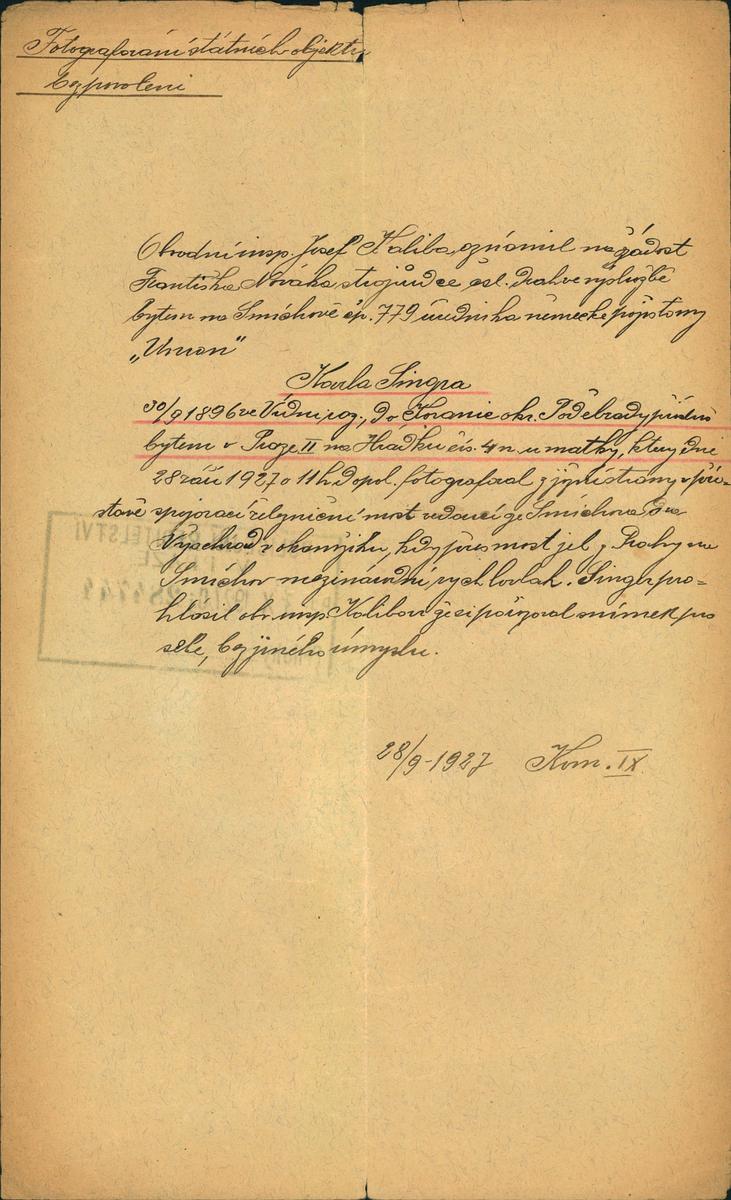 Fotografování státních objektů
bez povolení
Obvodní insp. Josef Kaliba, oznámil na žádost
Františka Nováka, strojvůdce čsl. drah ve výslužbě
bytem na Smíchově čp. 779 úředníka německé pojišťovny
„Union"
Karla Singra
30/9 1896 ve Vídni roz., do okr. Poděbrady přísluš.
bytem v Praze II na Hrádku čís. 4n. u matky, který dne
28 září 1927 o 11 h. dopol. fotografoval z jižní strany v pří-
stavě spojovací železniční most vedoucí ze Smíchova na
Vyšehrad v okamžiku, kdy přes most jel z Prahy na
Smíchov mezinárodní rychlovlak. Singer pro-
hlásil obv. insp. Kalibovi že si pořizoval snímek pro
sebe, bez jiného úmyslu.
28/9-1927 Kom. IX